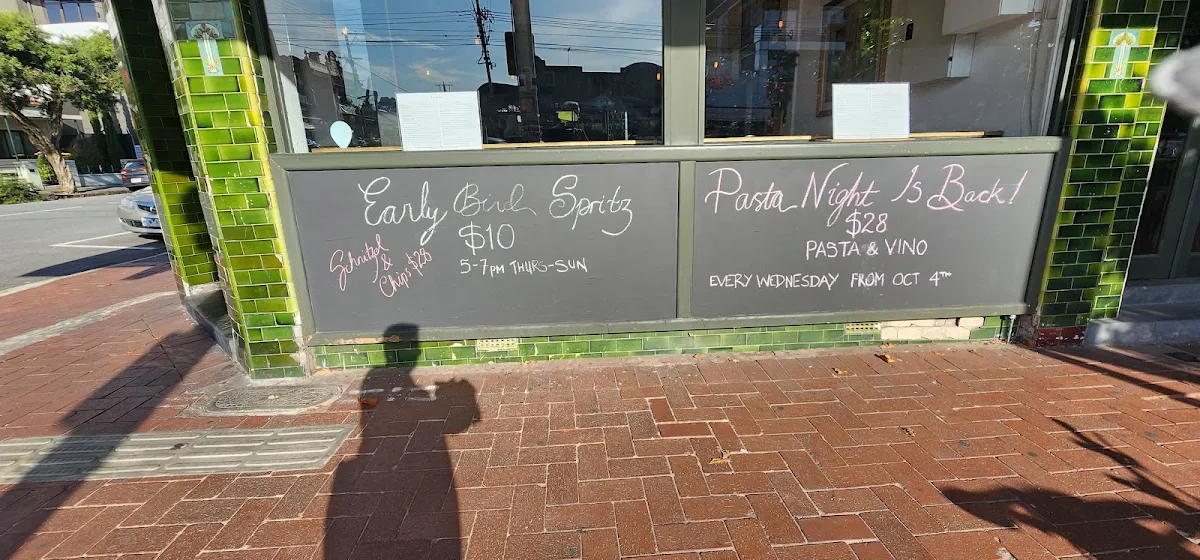 Early Bird Spritz
$10
5-7PM THURS-SUN
Schnitzel
&
Chips $28
Pasta Night Is Back!
$28
PASTA & VINO
EVERY WEDNESDAY FROM OCT 4TH